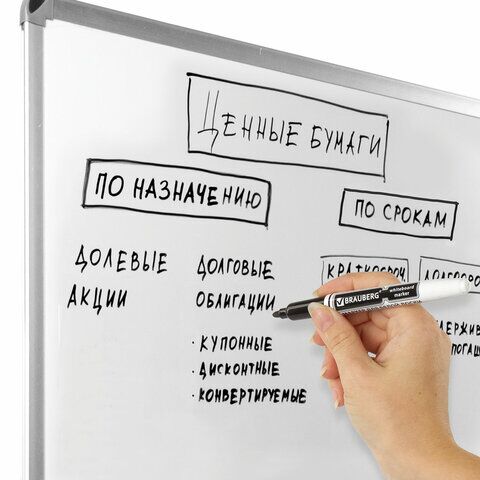 ЦЕННЫЕ БУМАГИ
ПО НАЗНАЧЕНИЮ
ПО СРОКАМ
ДОЛЕВЫЕ
АКЦИИ
ДОЛГОВЫЕ
ОБЛИГАЦИИ
· КУПОННЫЕ
· ДИСКОНТНЫЕ
· КОНВЕРТИРУЕМЫЕ
КРАТКОСРОЧ
ДОЛГОСРО
BRAUBERG
whiteboard
marker